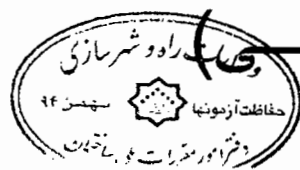 وزارت راه و شهرسازی
حفاظت آزمونها
بهمن ۹۴
دفتر امور مقررات ملی ساختمان